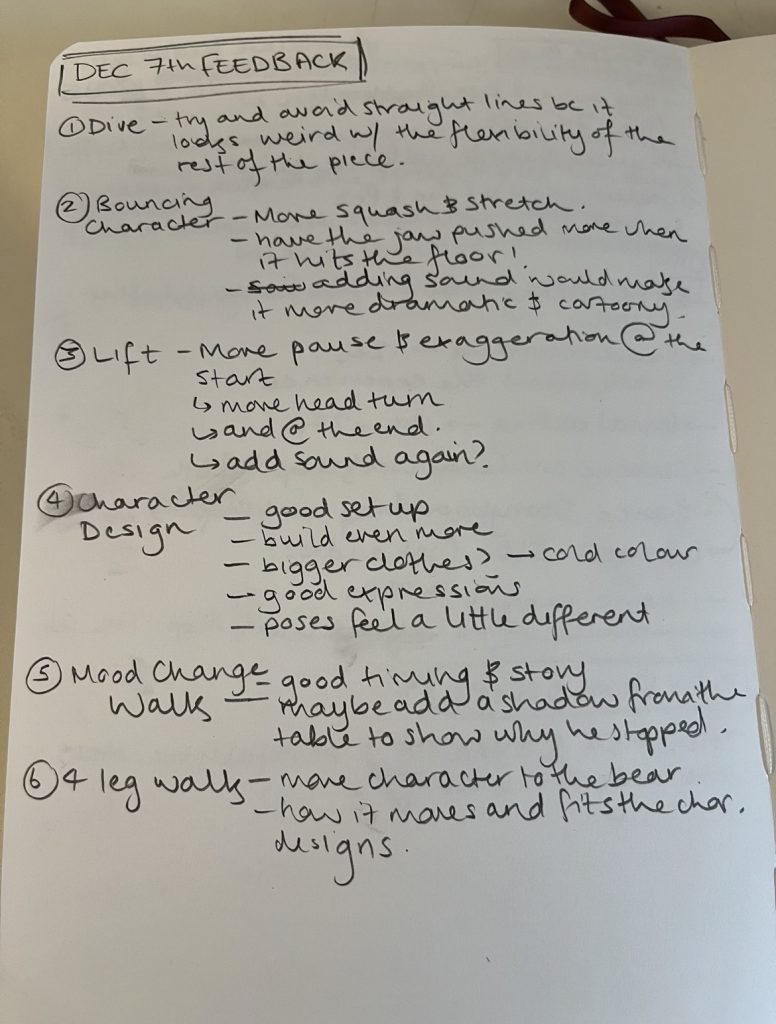 DEC 7th FEEDBACK
① Dive – try and avoid straight lines bc it
looks weird w/ the flexibility of the
rest of the piece.
② Bouncing
Character – More squash & stretch.
– have the jaw pushed more when
it hits the floor!
– adding sound would make
it more dramatic & cartoony.
③ Lift – More pause & exaggeration @ the
start
↳ more head turn
↳ and @ the end.
↳ add sound again?
④ Character
Design – good set up
– build even more
– bigger clothes? → cold colour
– good expressions
– poses feel a little different
⑤ Mood Change – good timing & story
Walk – maybe add a shadow from the
table to show why he stopped.
⑥ 4 leg walk – more character to the bear
– how it moves and fits the char.
designs.